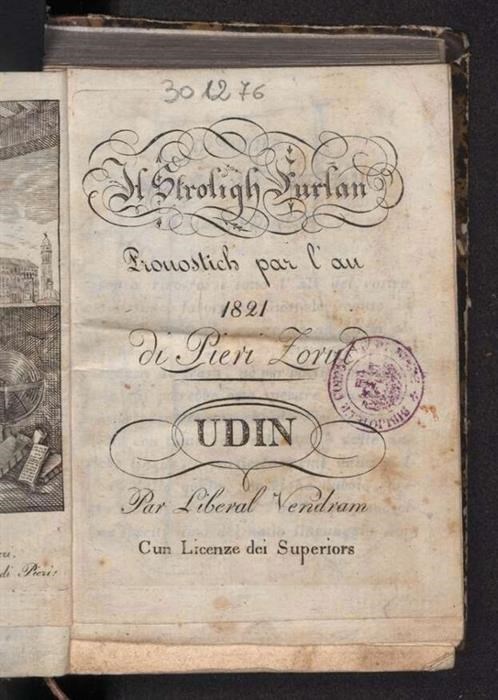 301276
Il Stroligh Furlan
Pronostich par l'an
1821
di Pieri Zorut
UDIN
Par Liberal Vendram
Cun Licenze dei Superiors
di Pieri,